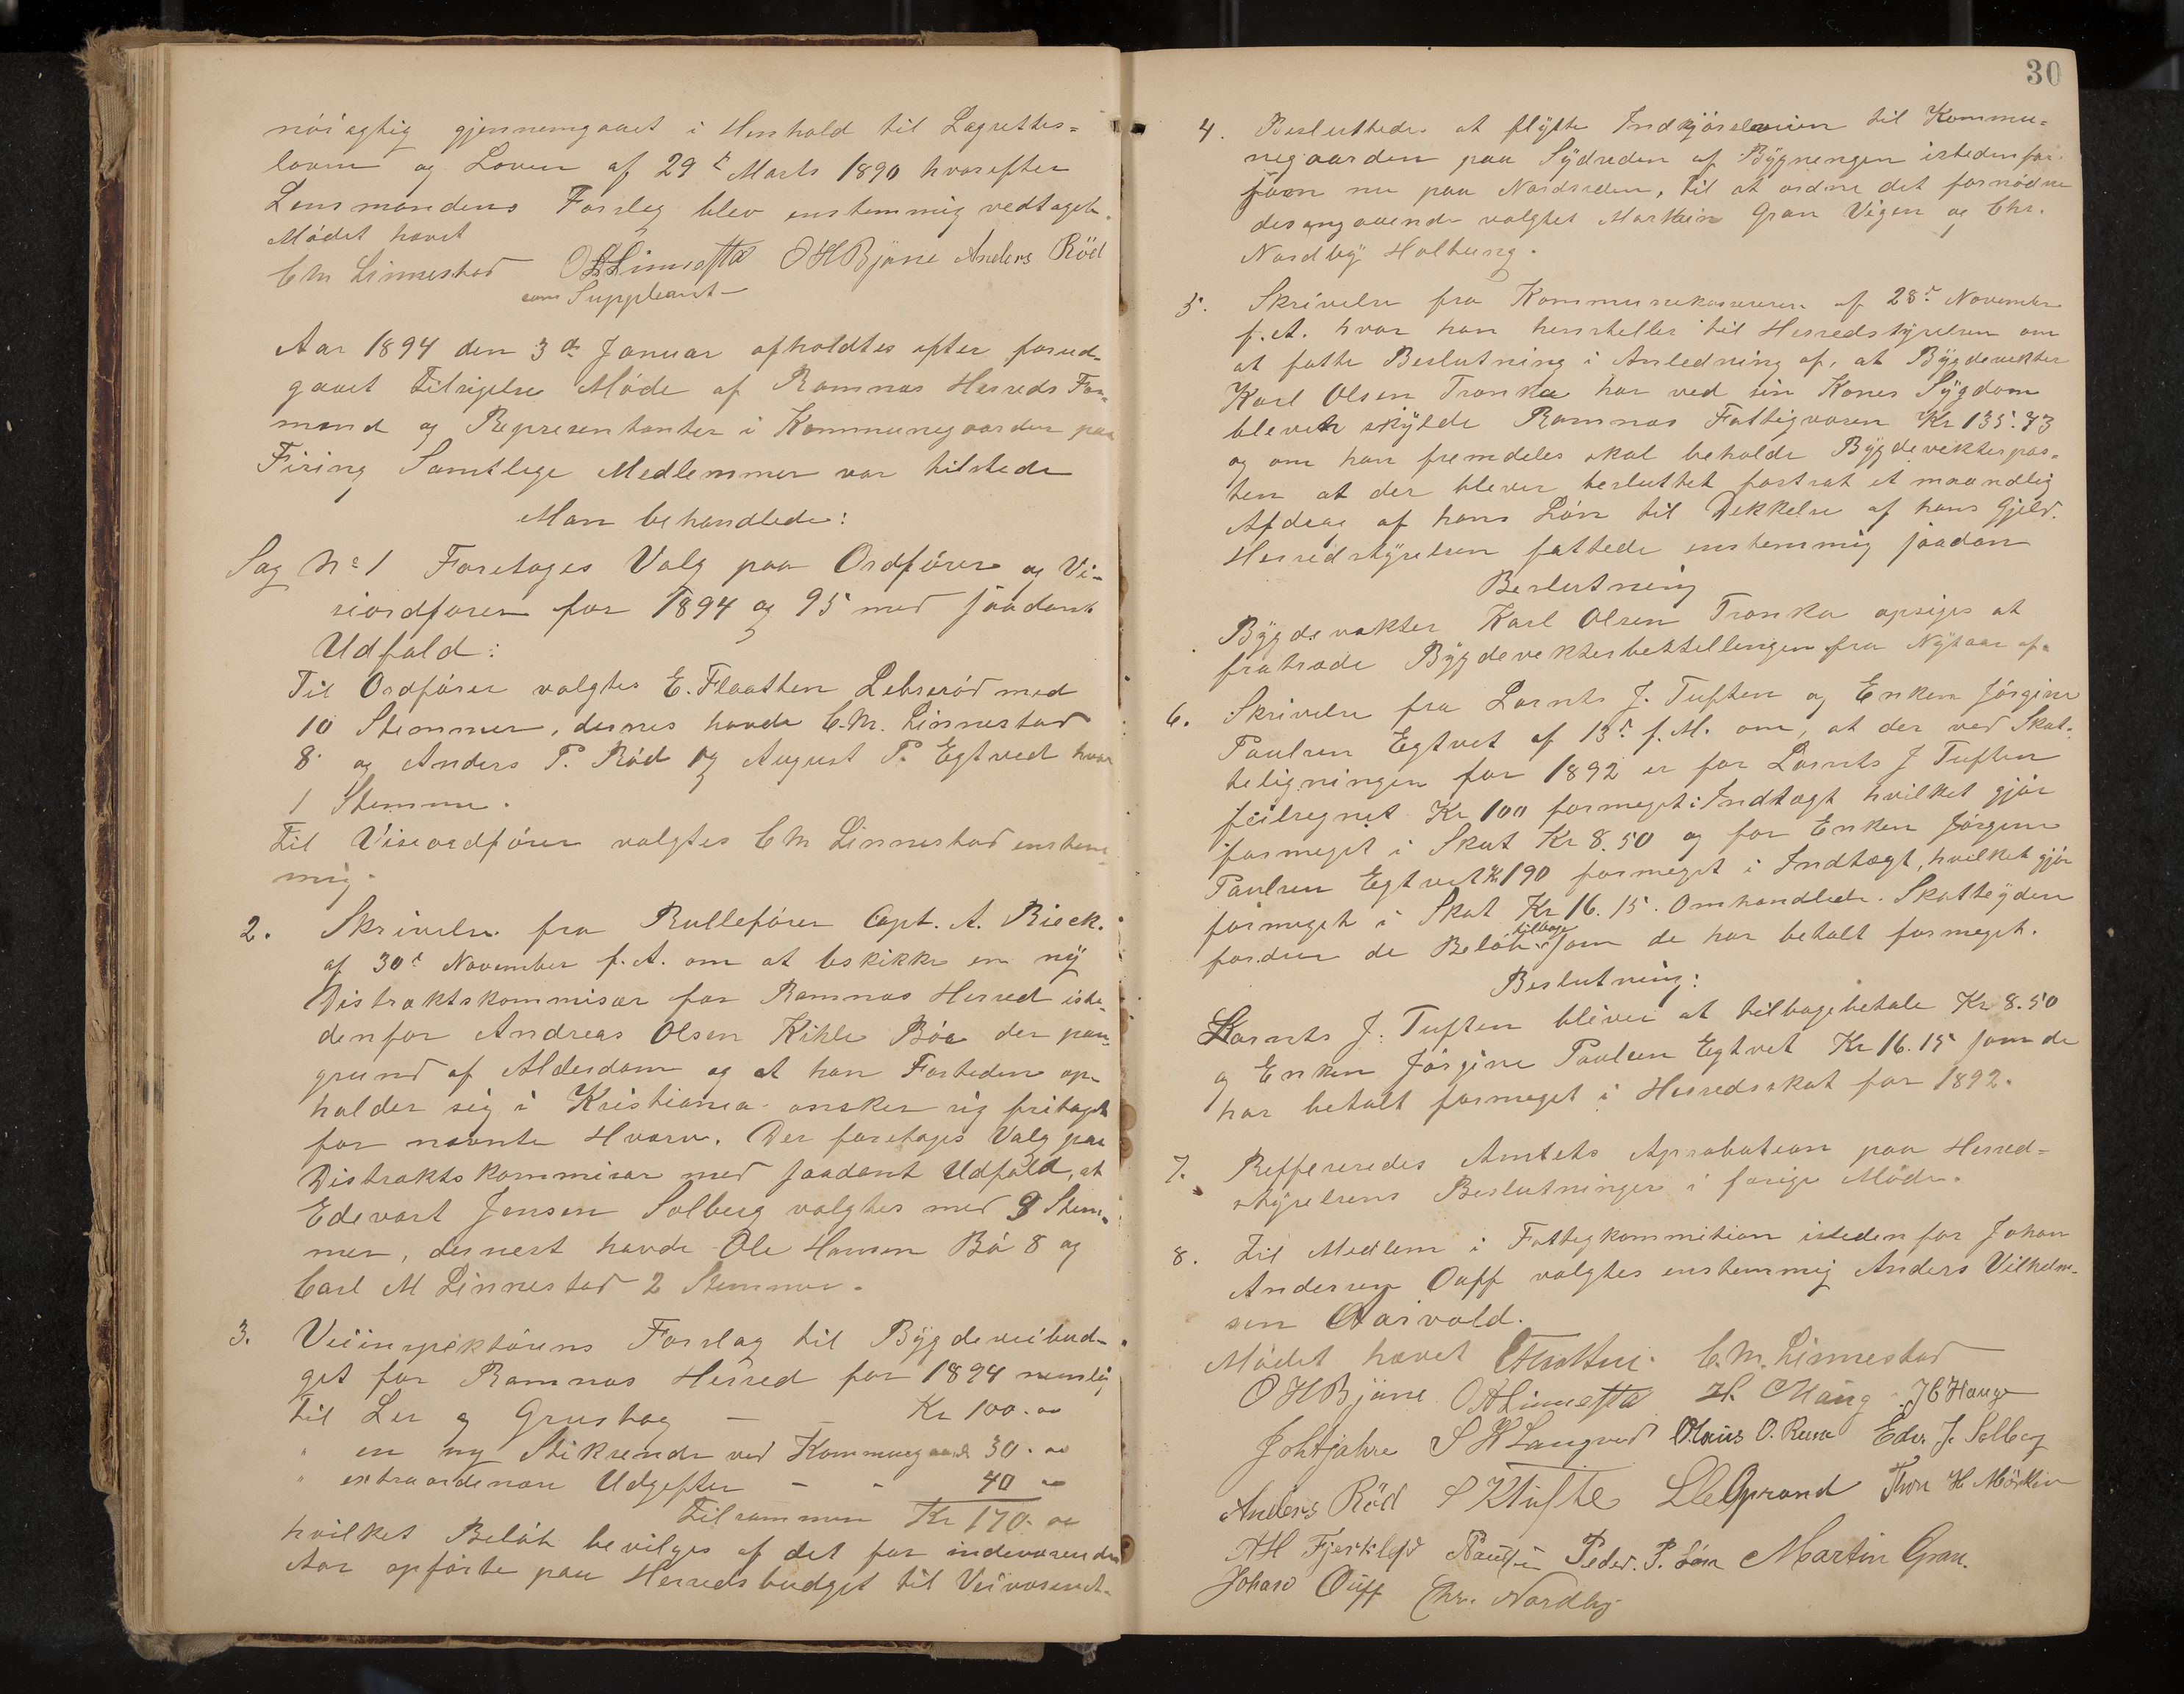 nöiagtig gjennemgaaet i Henhold til Lagrettes=
loven og Loven af 29de Marts 1890 hvorefter
Lensmandens Forslag blev enstemmig vedtaget.
Mödet hævet
C M Linnestad O A Linnestad O H Bjöne Anders Röd
som Suppleant
Aar 1894 den 3de Januar afholdtes efter forud-
gaaet Tilsigelse Möde af Ramnæs Herreds For-
mænd og Repræsentanter i Kommunegaarden paa
Firing Samtlige Medlemmer var tilstede
Man behandlede:
Sag No 1 Foretages Valg paa Ordförer og Vi-
seordförer for 1894 og 95 med saadant
Udfald:
Til Ordförer valgtes E. Flaatten Lebseröd med
10 Stemmer, dernes havde C. M. Linnestad
8 og Anders P. Röd og August P. Egtved hver
1 Stemme.
Til Viseordförer valgtes C M Linnestad enstem-
mig.
2. Skrivelse fra Rulleförer Capt. A. Rieck.
af 30te November f. A. om at beskikke en ny
Distraktskommisær for Ramnæs Herred iste-
denfor Andreas Olsen Kihle Böe der paa
grund af Alderdom og at han Fortiden op-
holder sig i Kristiania önsker sig fritaget
for nævnte Hværv. Der foretages Valg paa
Distraktskommisær med saadant Udfald, at
Edevart Jensen Solberg valgtes med 9 Stem-
mer, dernest havde Ole Hansen Bö 8 og
Carl M Linnestad 2 Stemmer.
3. Veiinspektörens Forslag til Bygdeveibud-
get for Ramnæs Herred for 1894 nemlig
Til Ler og Grustag — — Kr 100.00
" en ny Stikrende ved Kommunegaard 30.00
" extraordenære Udgefter - - 40 00
Tilsammen Kr 170.00
hvilket Belöb bevilges af det for indeværende
Aar opförte paa Herredsbudget til Veivæsenet.
30
4. Besluttedes at flytte Indkjörselsveien til Kommu-
negaarden paa Sydsiden af Bygningen istedenfor
som nu paa Nordsiden, til at ordne det fornödne
desangaaende valgtes Martin Gran Vigen og Chr.
Nordby Holtung.
5. Skrivelse fra Kommunekassereren af 28de November
f. A. hvor han henstiller til Herredstyrelsen om
at fatte Beslutning i Anledning af, at Bygdevekter
Karl Olsen Tranka har ved sin Kones Sygdom
bleveh skyldt Ramnæs Fattigvæsen Kr 135.73
og om han fremdeles skal beholde Bygdevekterpos-
ten at der bliver besluttet fastsat et maandlig
Afdrag af hans Lön til Dekkelse af hans Gjeld.
Herredstyrelsen fattede enstemmig saadan
Beslutning
Bygdevekter Karl Olsen Tranka opsiges at
fratræde Bygdevekterbestellingen fra Nytaar af.
6. Skrivelse fra Lornts J. Tuften og Enken Jörgine
Paulsen Egtvet af 13de f. M. om, at der ved Skat-
teligningen for 1892 er for Lornts J Tuften
feilregnet Kr 100 formeget i Indtægt hvilket gjör
formeget i Skat Kr 8.50 og for Enken Jörgine
Paulsen Egtvet Kr 190 formeget i Indtægt, hvilket gjör
formeget i Skat Kr 16.15. Omhandlede Skatteydere
fordrer de Belöb tilbage som de har betalt formeget.
Beslutning:
Lornts J. Tuften bliver at tilbagebetale Kr 8.50
og Enken Jörgine Paulsen Egtvet Kr 16.15 som de
har betalt formeget i Herredsskat for 1892.
7. Reffereredes Amtets Aprobation paa Herred=
styrelsens Beslutninger i forige Möde.
8. Til Medlem i Fattigkommition istedenfor Johan
Andersen Ouff valgtes enstemmig Anders Vilhelm-
sen Aarvold.
Mödet hævet E Flaatten. C. M. Linnestad
O H Bjöne O A Linnestad H. C Haug J C Hauge
S H Langved Olaus O. Rursa Edv. J. Solberg
Anders Röd S K Tufte Thor H Mörken
Paulsen Peder P. Martin Gran.
Johan Ouff Chr. Nordby